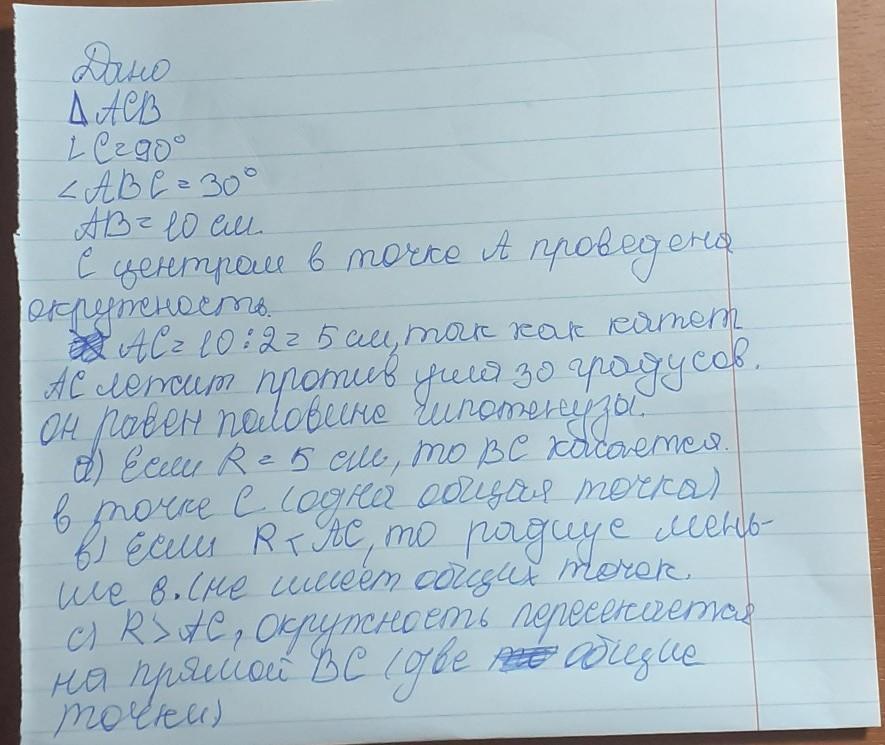 Дано
Δ ACB
∠C=90°
∠ABC=30°
AB=10 см.
С центром в точке A проведена
окружность.
AC=10:2=5 см, так как катет
AC лежит против угла 30 градусов.
он равен половине гипотенузы.
a) Если R=5 см, то BC касается.
в точке C (одна общая точка)
в) Если R<AC, то радиус мень-
ше в. (не имеет общих точек.
c) R>AC, окружность пересекается
на прямой BC (две общие
точки)